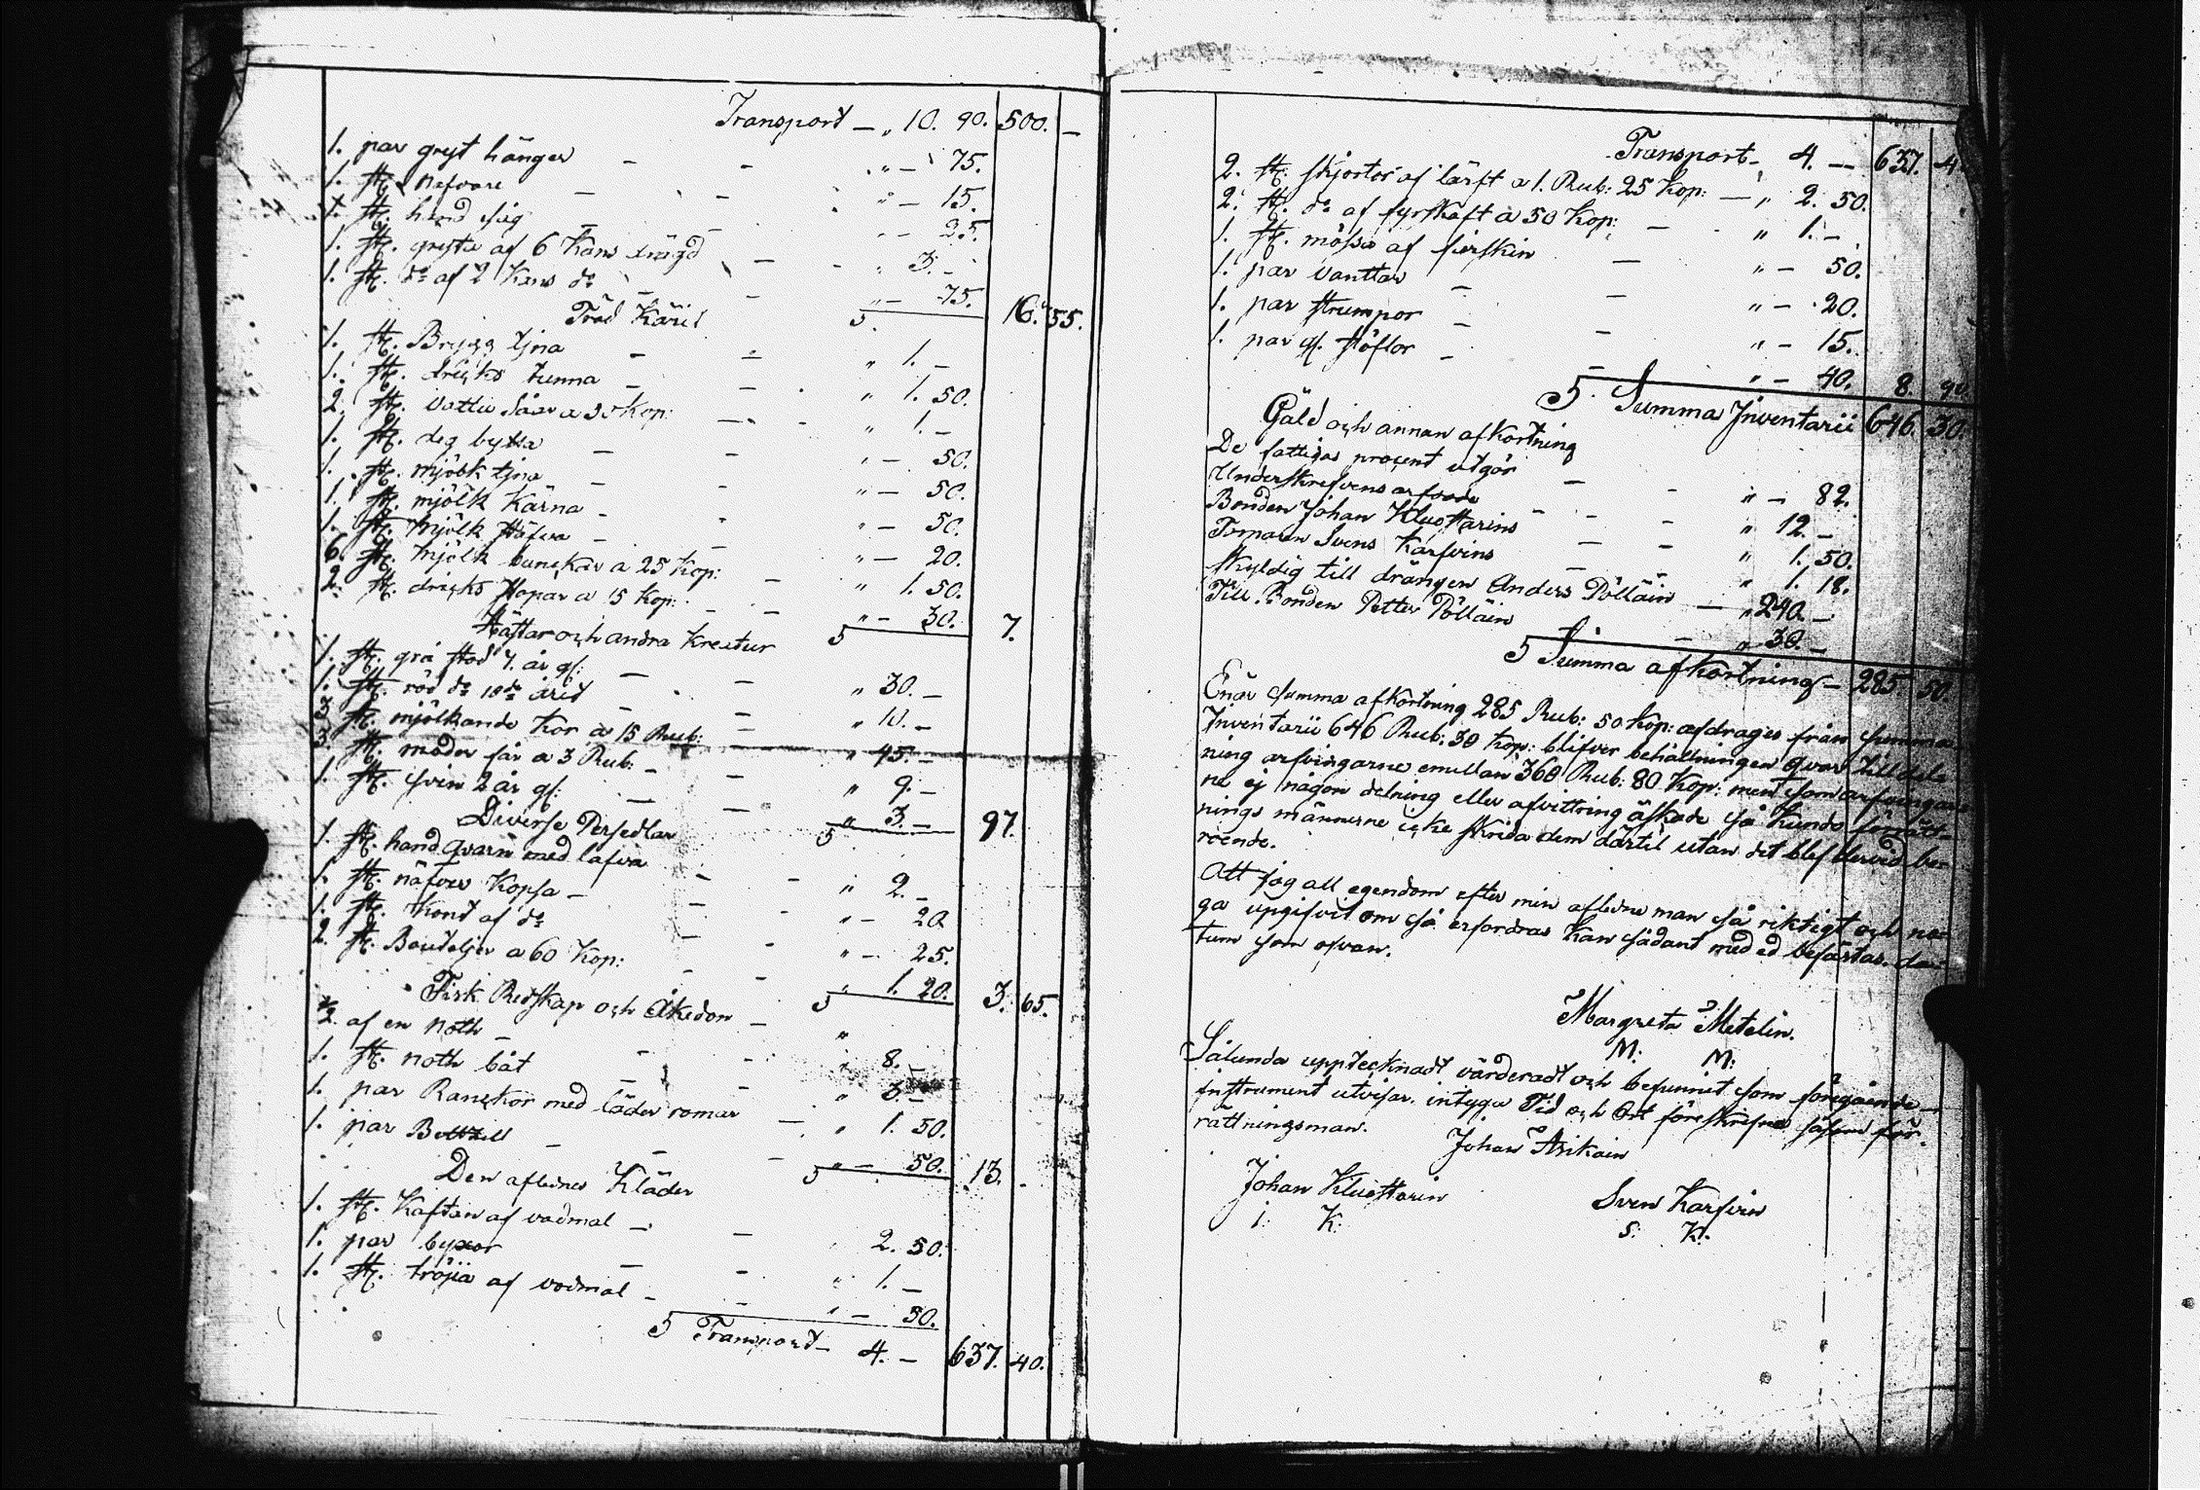 Transport — „ 10. 90. 500. —
1. par gryt hänger - - „ — 75.
1. st. nafvare - - - „ — 15.
1. st. hand såg - - „ — 25.
1. st. gryta af 6 Kans - - „ 3. —
1. st. do af 2 Kans do - - „ — 75.
Träd Käril 5. 16. 55.
1. st. Brygg tjna - - „ 1. —
1. st. dricks tunna - - „ 1. 50.
2. st. vattu Såar a 50 Kop: - - „ 1. —
1. st. deg bytta - - „ — 50.
1. st. mjölk tjna - - „ — 50.
1. st. mjölk Kärna - - „ — 50.
1. st. mjölk Stäfva - - „ — 20.
6. st. mjölk bunckar a 25 Kop: - „ 1. 50.
2. st. dricks Stopar a 15 Kop: - - „ — 30.
Hästar och andra Kreatur 5 7.
1. st. grå stod 7. år gl: - - „ 30. —
1. st. röd do 18de årit - - „ 10. —
3. st. mjölkande Kor a 15 Rub: - „ 45. —
3. st. moder får a 3 Rub: - - „ 9. —
1. st. svin 2 år gl: - - „ 3. —
Diverse Persedlar 5 97.
1. st. hand qvarn med lafva - - „ 2. —
1. st. näfver Kopsa - - - „ — 20.
1. st. Kont af do - - „ — 25.
2. st. Bouteljer a 60 Kop: - - „ 1. 20.
Fisk Redskap och Åkedon - 5 3. 65.
1/2 af en noth - - - „ 8. —
1. st. noth båt - - „ 3. —
1. par Ranckor med läder romar - „ 1. 50.
1. par - - - „ — 50.
Den aflednes Kläder 5 13. -
1. st. Kaftan af vadmal - - 2. 50.
1. par byxor - - „ 1. —
1. st. tröjia af vadmal - - „ — 50.
5 Transport - 4. — 637. 40.
Transport - 4. — 637. 4
2. st. skjortor af lärft a 1. Rub: 25 Kop: — „ 2. 50.
2. st. do af fyrskaft a 50 Kop: - „ 1. —
1. st. mössa af - „ — 50.
1. par vanttar - - „ — 20.
1. par strumpor - - „ — 15.
1. par gl. stöflor - - „ — 40. 8. 90.
5. Summa Inventarii 646. 30.
Gäld och annan afkortning
De fattigas procent utgör - - „ — 82.
Underskrefvens arfvode - - - „ 12. —
Bonden Johan Kluottarins - - „ 1. 50.
Svens Karfvins - „ 1. 18.
Skyldig till drängen Anders Pölläin — „ 240. —
Till Bonden Petter Pölläin - - „ 30. —
5 Summa afkortning — 285 50.
Enär summa afkortning 285 Rub: 50 Kop: afdrages från summa
Inventarii 646 Rub: 30 Kop: blifver behållningen qvar till del-
ning arfvingarne emullan 360 Rub: 80 Kop: ment som arfvingar-
ne ej någon delning eller afvittring äskade så kunde förrätt-
nings männerne icke skrida dem därtil utan det blef dervid be-
roende.
Att jag all egendom efter min afledne man så riktigt och no-
ga upgifvit om så erfordras kan sådant med ed befästas. da-
tum som ofvan.
Margreta Metelin.
M: M:
Sålunda upptecknadt värderadt och befunnit som föregående
instrument utvisar. intyga Tid och Ort föreskrefne såsom för-
rättningsman.
Johan Asikain
Johan Kluottarin Sven Karfvin
I: K: S: K: